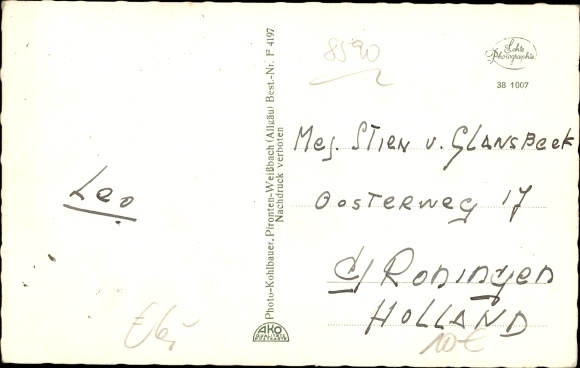 Leo
Photo-Kohlbauer, Pfronten-Weißbach (Allgäu) Best.-Nr. F 4197
Nachdruck verboten
AKO
QUALITÄTS
POSTKARTE
8590
Echte
Photographie
38 1007
Mej. Stien v. Glansbeek
Oosterweg 17
Groningen
HOLLAND
10 €